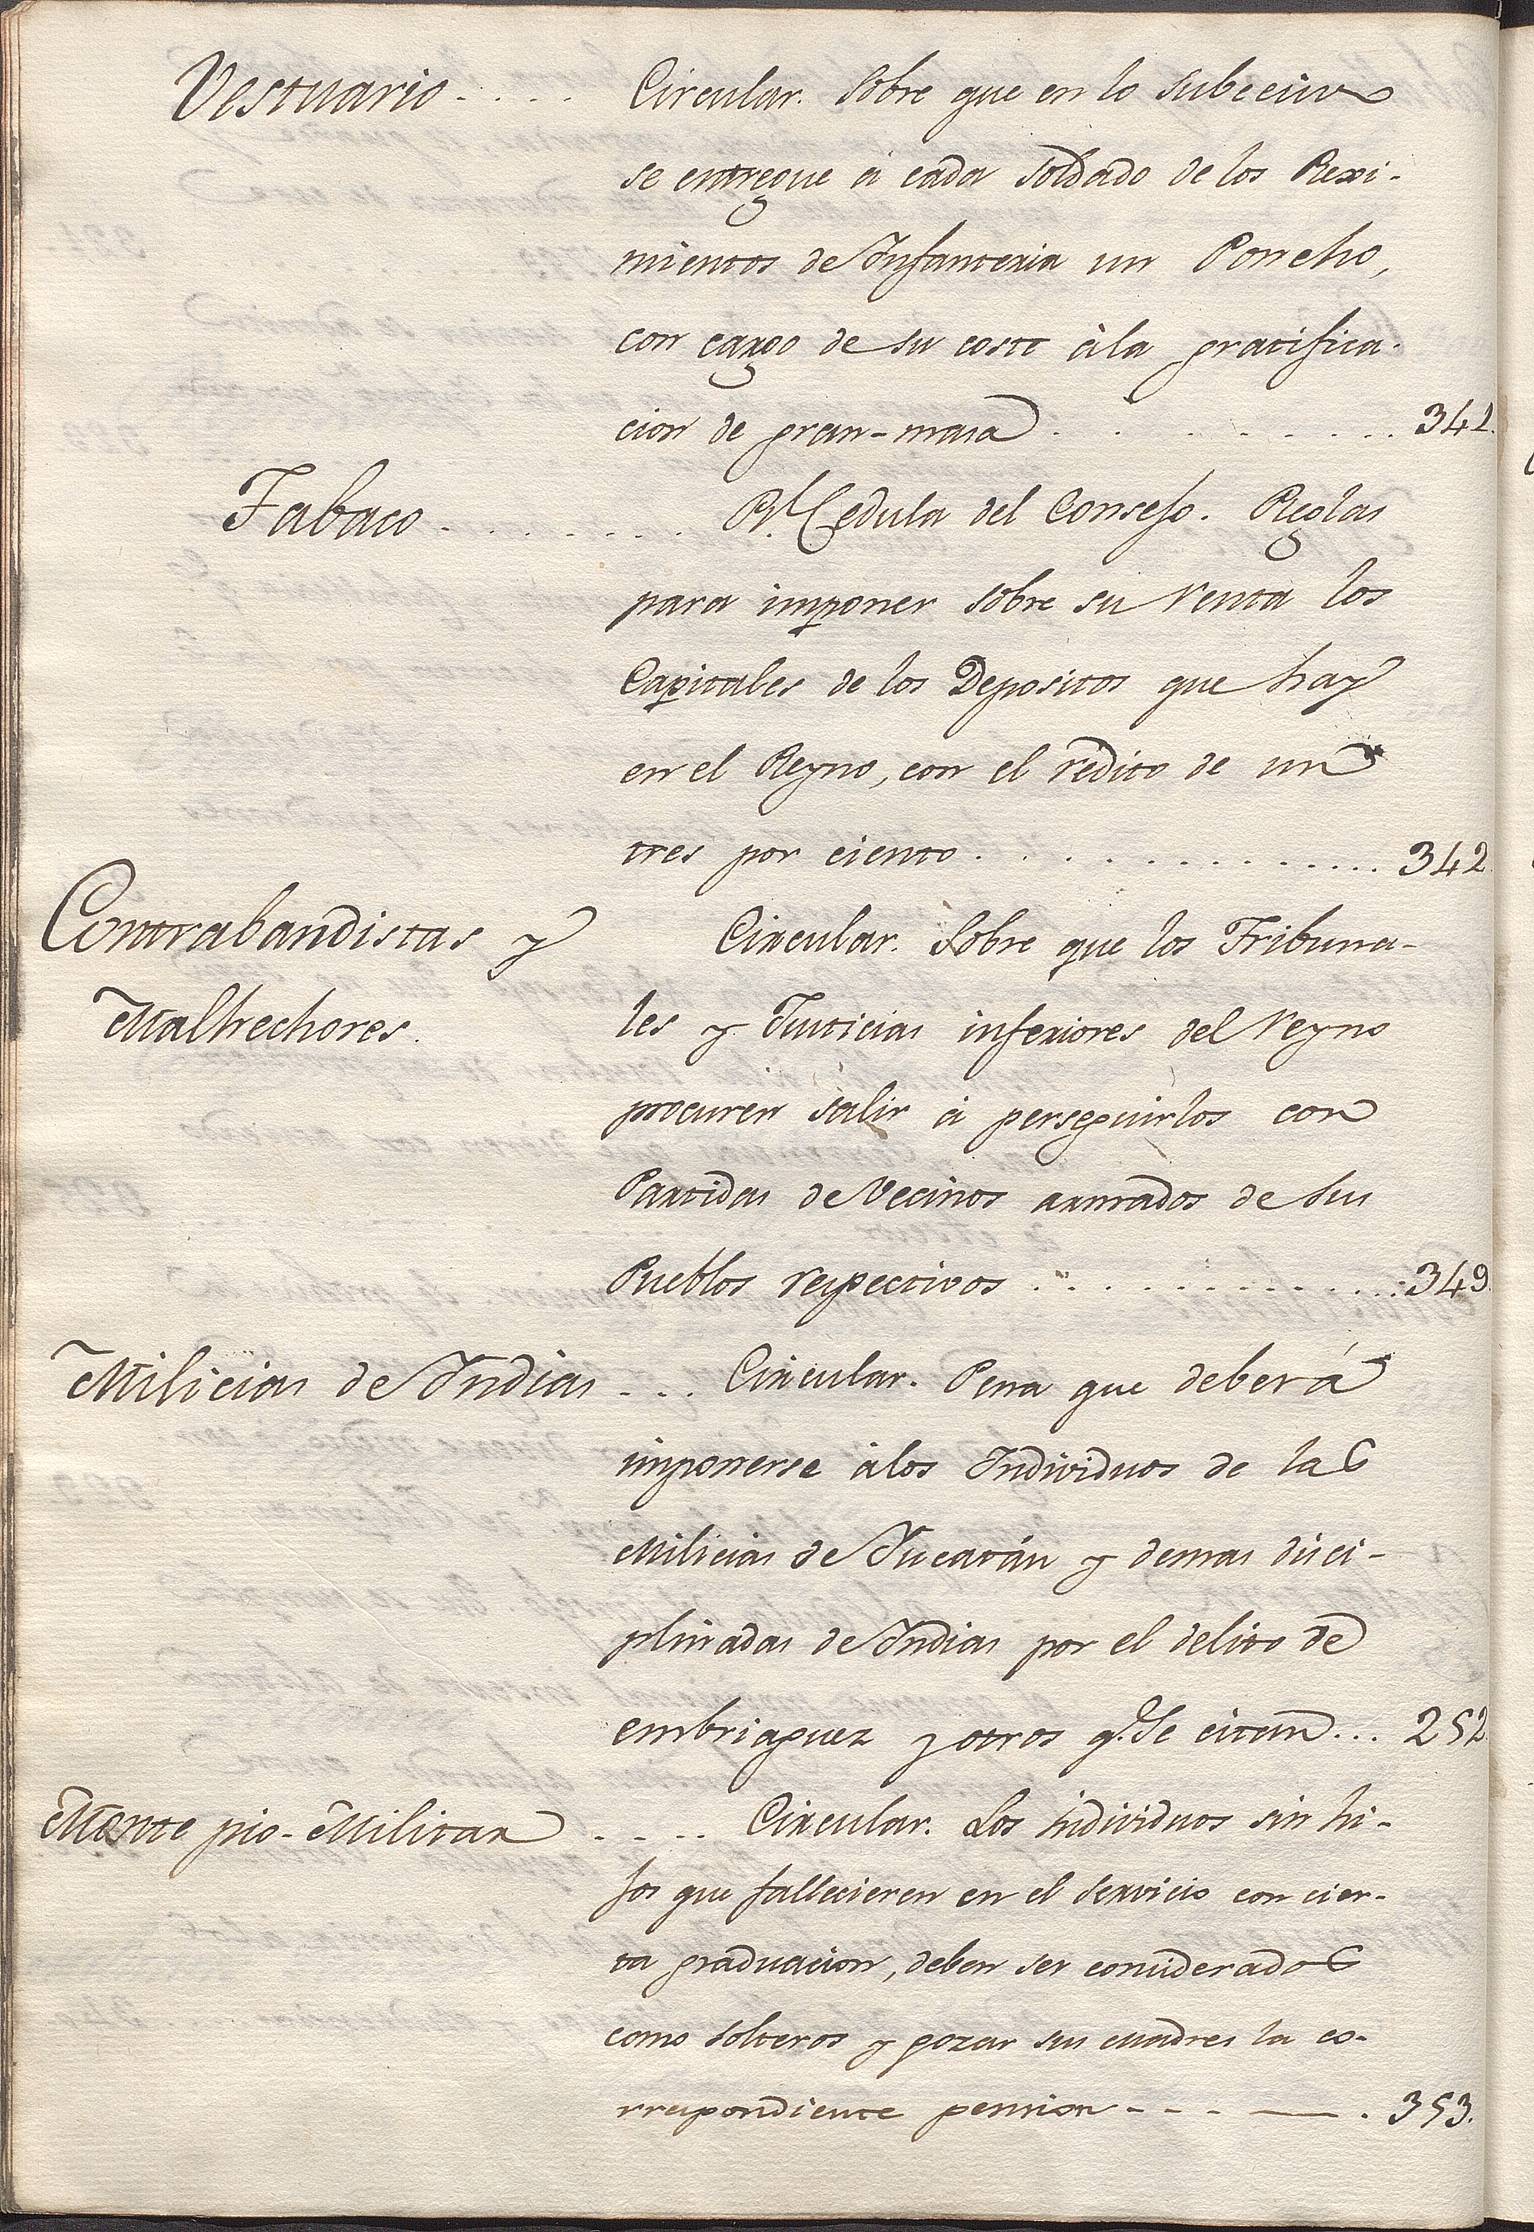 Vestuario - . . . Circular. Sobre que en lo subcecivo
se entregue á cada soldado de los Rexi-
mientos de Infanteria un Poncho,
con cargo de su costo àla gratifica-
cion de gran-masa . . . . . . . . . 342.
Tabaco - . . . . . . Rl. Cedula del Consejo. Reglas
para imponer sobre su renta los
Capitales de los Depositos que hay
en el Reyno, con el redito de un
tres por ciento . . . . . . . . . . . 342
Contrabandistas y Circular. Sobre que los Tribuna-
Malhechores. les y Justicias inferiores del reyno
procuren salir á perseguirlos con
Partidas de Vecinos armados de sus
Pueblos respectivos . . . . . . . . . . . 349.
Milicias de Indias - . . Circular. Pena que deberá
imponerse álos Individuos de las
Milicias de Yucatán y demas disci-
plinadas de Indias por el delito de
embriaguez y otros q.e se citan . . . 252.
Monte pio-Militar . . . . Circular. Los individuos sin hi-
jos que fallecieren en el servicio con cier-
ta graduacion, deben ser considerados
como solteros y gozar sus madres la co-
rrespondiente pension - - - — . 353.